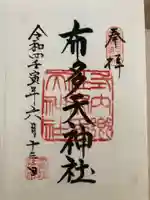 奉拝
布多天神社
令和四壬寅年六月十三日